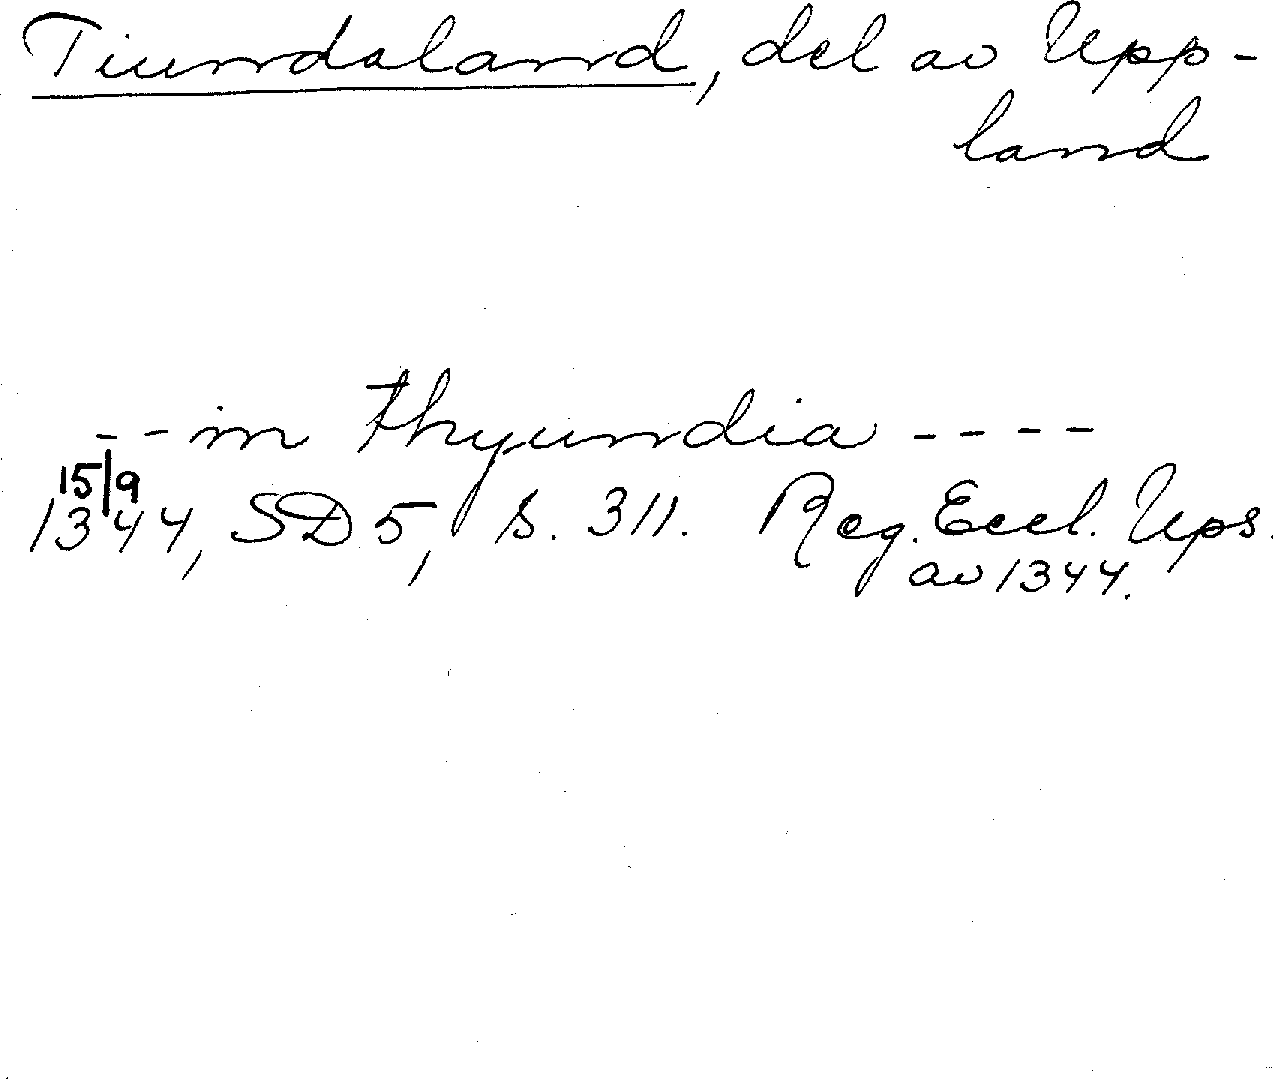 Tiundaland, del av Upp-
land
- - in thyundia - - - -
15/9
1344, SD 5, s. 311. Reg. Eccl. Ups.
av 1344.